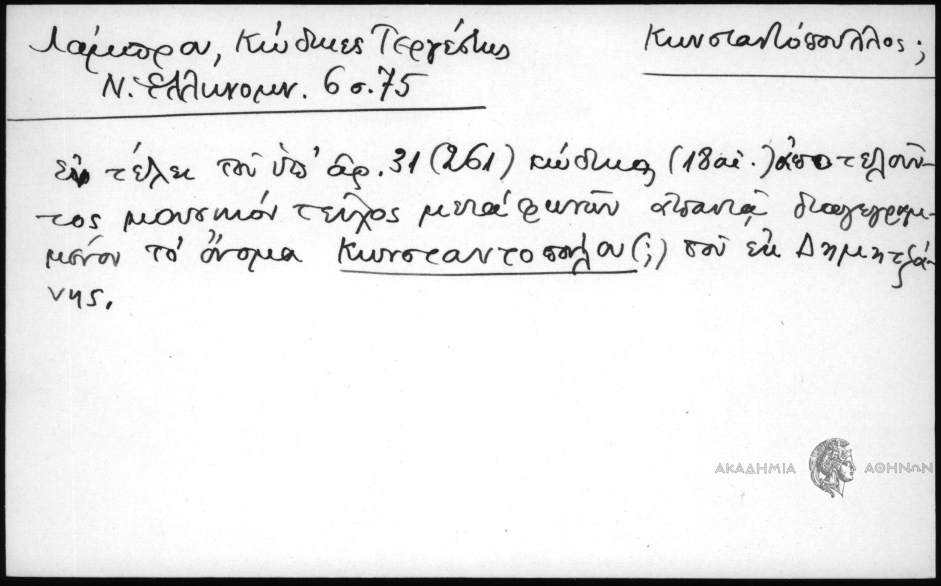 Λάμπρου, Κώδικες Τεργέστης
Κωνσταντόπουλλος;
Ν. Ἑλληνομν. 6 σ. 75
ἐν τέλει τοῦ ὑπ' ἀρ. 31 (261) κώδικος (18 αἰ.) ἀποτελοῦν-
τος μουσικόν τεῦχος μετά φωνῶν ἀπαντᾷ διαγεγραμ-
μένον τό ὄνομα Κωνσταντοπούλου (;) τοῦ ἐκ Δημητσά-
νης.
ΑΚΑΔΗΜΙΑ ΑΘΗΝΩΝ